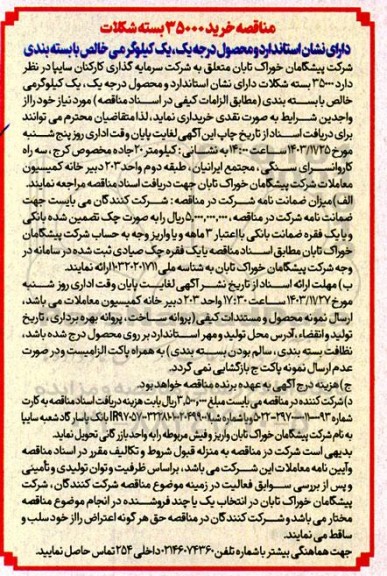 مناقصه خرید ۳۵۰۰۰ بسته شکلات
دارای نشان استاندارد و محصول درجه یک، یک کیلوگرمی خالص با بسته بندی
شرکت پیشگامان خوراک تابان متعلق به شرکت سرمایه گذاری کارکنان سایپا در نظر
دارد ۳۵۰۰۰ بسته شکلات دارای نشان استاندارد و محصول درجه یک، یک کیلوگرمی
خالص با بسته بندی (مطابق الزامات کیفی در اسناد مناقصه) مورد نیاز خود را از
واجدین شرایط به صورت نقدی خریداری نماید، لذا متقاضیان محترم می توانند
برای دریافت اسناد از تاریخ چاپ این آگهی لغایت پایان وقت اداری روز پنج شنبه
مورخ ۱۴۰۳/۱/۲۵ ساعت ۱۴:۰۰ به نشانی: کیلومتر ۲۰ جاده مخصوص کرج، سه راه
کاروانسرای سنگی، مجتمع ایرانیان، طبقه دوم واحد ۲۰۳ دبیر خانه کمیسیون
معاملات شرکت پیشگامان خوراک تابان جهت دریافت اسناد مناقصه مراجعه نمایند.
الف) میزان ضمانت نامه شرکت در مناقصه: شرکت کنندگان می بایست جهت
ضمانت نامه شرکت در مناقصه، ۵,۰۰۰,۰۰۰,۰۰۰ ریال را به صورت چک تضمین شده بانکی
و یا یک فقره ضمانت بانکی با اعتبار ۳ ماهه و یا واریز وجه به حساب شرکت پیشگامان
خوراک تابان مطابق اسناد مناقصه یا یک فقره چک صیادی ثبت شده در سامانه در
وجه شرکت پیشگامان خوراک تابان به شناسه ملی ارائه نمایند.
ب) مهلت ارائه اسناد از تاریخ نشر آگهی لغایت پایان وقت اداری روز شنبه
مورخ ۱۴۰۳/۱/۲۷ ساعت ۱۷:۳۰ واحد ۲۰۳ دبیر خانه کمیسیون معاملات می باشد،
ارسال نمونه محصول و مستندات کیفی (پروانه ساخت، پروانه بهره برداری، تاریخ
تولید و انقضاء، آدرس محل تولید و مهر استاندارد بر روی محصول درج شده باشد،
نظافت بسته بندی، سالم بودن بسته بندی) به همراه پاکت الزامیست و در صورت
عدم ارسال نمونه پاکت ج بازگشایی نمی گردد.
ج) هزینه درج آگهی به عهده برنده مناقصه خواهد بود.
د) شرکت کننده در مناقصه می بایست مبلغ ۳,۵۰۰,۰۰۰ ریال بابت هزینه دریافت اسناد مناقصه به کارت
شماره و یا شماره شبا بانک پاسارگاد شعبه سایپا
به نام شرکت پیشگامان خوراک تابان واریز و فیش مربوطه را به واحد بازرگانی تحویل نماید.
بدیهی است شرکت در مناقصه به منزله قبول شروط و تکالیف مقرر در اسناد مناقصه
و آیین نامه معاملات این شرکت می باشد، براساس ظرفیت و توان تولیدی و تأمینی
و پس از بررسی سوابق فعالیت در زمینه موضوع مناقصه شرکت کنندگان، شرکت
پیشگامان خوراک تابان در انتخاب یک یا چند فروشنده در انجام موضوع مناقصه
مختار می باشد و شرکت کنندگان در مناقصه حق هر گونه اعتراض را از خود سلب و
ساقط می نمایند.
جهت هماهنگی بیشتر با شماره تلفن ۰۲۱۴۶۰۷۴۳۶۰ داخلی ۲۵۴ تماس حاصل نمایید.